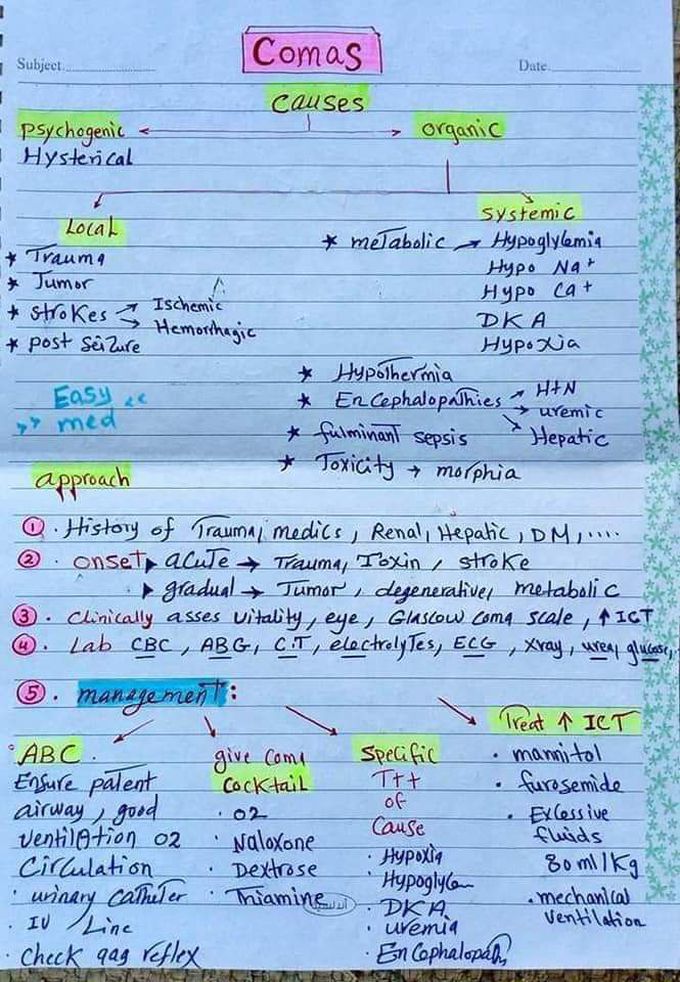 Comas
Subject. Date.
Causes
Psychogenic organic
Hysterical
Local
Systemic
* Trauma
* Tumor
* strokes → Ischemic
→ Hemorrhagic
* post seizure
* metabolic → Hypoglycemia
Hypo Na+
Hypo Ca+
DKA
Hypoxia
* Hypothermia
* Encephalopathies → HTN
→ uremic
→ Hepatic
* fulminant sepsis
* Toxicity → morphia
Easy <<
>> med
approach
① . History of Trauma, medics, Renal, Hepatic, DM, ....
② . onset ▸ acute → Trauma, Toxin, stroke
▸ gradual → Tumor, degenerative, metabolic
③ . clinically asses vitality, eye, Glascow coma scale, ↑ ICT
④ . Lab CBC, ABG, C.T, electrolytes, ECG, xray, urea, glucose,
⑤ . management:
ABC
Ensure patent
airway, good
ventilation O2
Circulation
· urinary catheter
· IV Line
· check gag reflex
give coma
cocktail
· O2
· Naloxone
· Dextrose
· Thiamine
Specific
Ttt
of
Cause
· Hypoxia
· Hypoglycem
· DKA
· uremia
· Encephalopath
Treat ↑ ICT
· mannitol
· furosemide
· Excessive
fluids
80 ml/Kg
· mechanical
ventilation